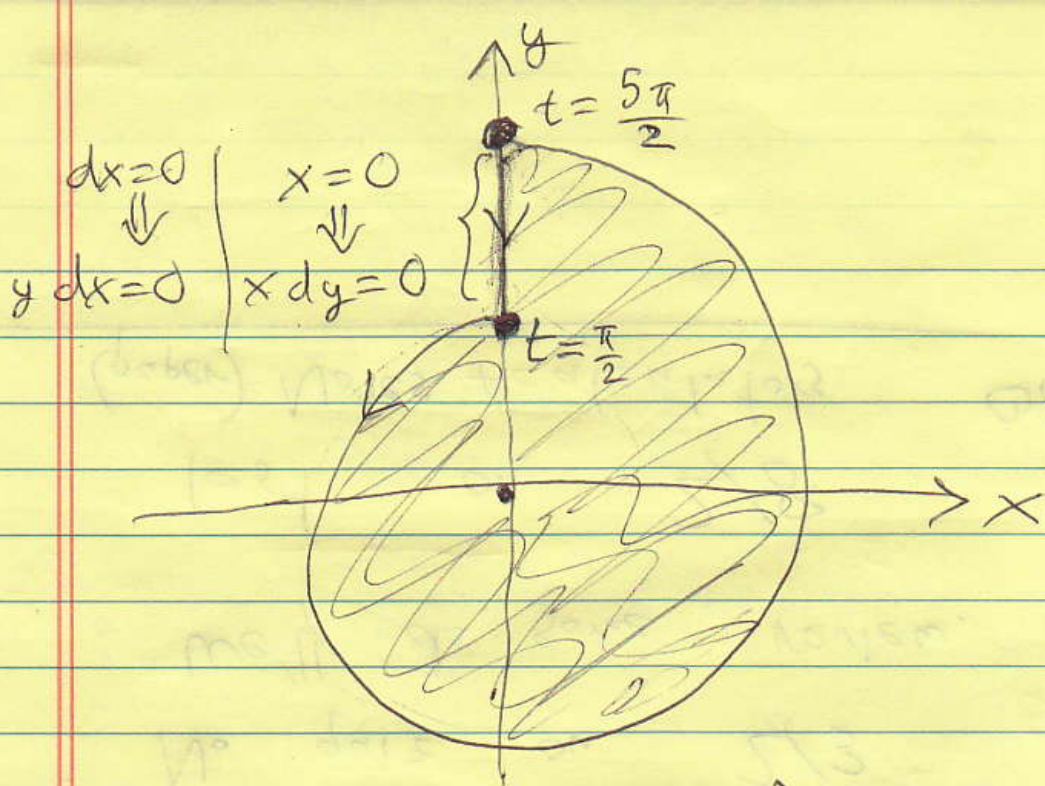 y
t = 5π/2
dx=0 | x=0
⇓ ⇓
y dx=0 | x dy=0
t = π/2
x